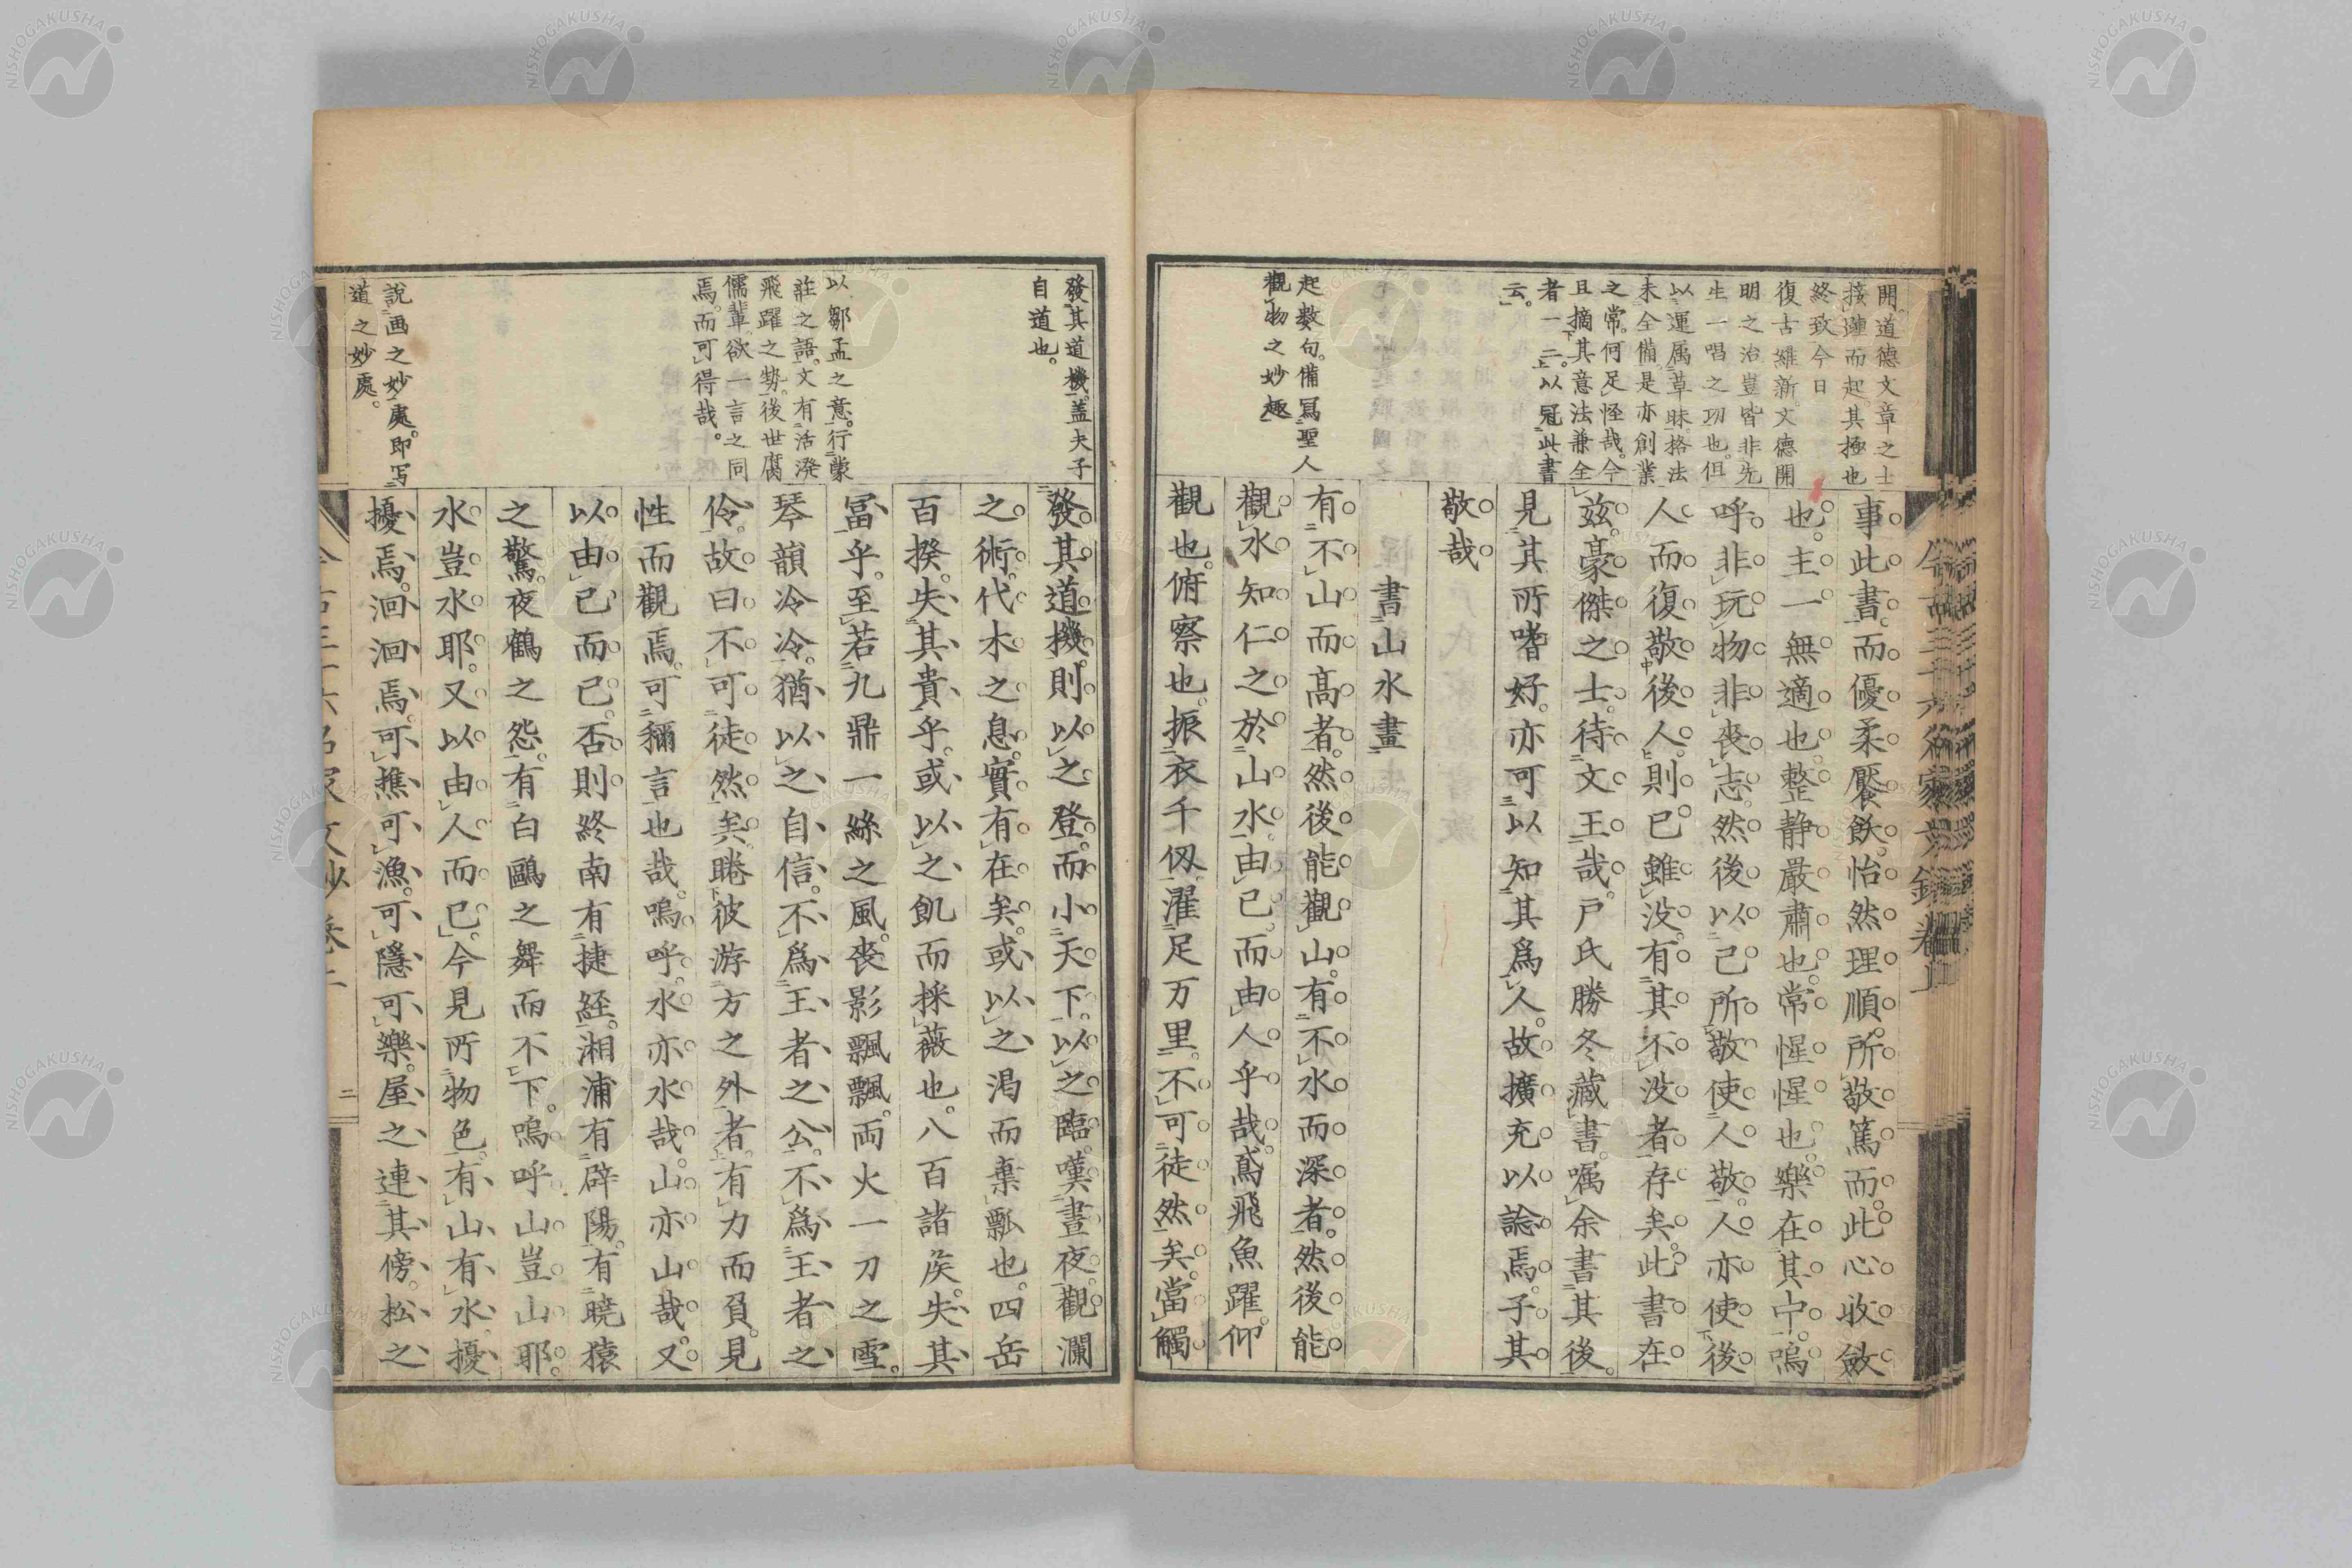 開道德文章之士
接踵而起其極也
終致今日
復古維新文德開
明之治豈皆非先
生一唱之功也但
以運属草昧格法
未全備是亦創業
之常何足怪哉今
且摘其意法兼全
者一二以冠此書
云
起数句備冩聖人
觀物之妙趣
事此書而優柔饜飫怡然理順所敬篤而此心收斂
也主一無適也整静嚴肅也常惺惺也樂在其中嗚
呼非玩物非喪志然後以己所敬使人敬人亦使後
人而復敬後人則已雖没有其不没者存矣此書在
茲豪傑之士待文王哉戸氏勝冬藏書嘱余書其後
見其所嗜好亦可以知其爲人故擴充以諗焉子其
敬哉
書山水畫
有不山而髙者然後能觀山有不水而深者然後能
觀水知仁之於山水由己而由人乎哉鳶飛魚躍仰
觀也俯察也振衣千仭濯足万里不可徒然矣當觸
發其道機盖夫子
自道也
以鄒孟之意行蒙
莊之語文有活溌
飛躍之勢後世腐
儒輩欲一言之同
焉而可得哉
説画之妙處即写
道之妙處
發其道機則以之登而小天下以之臨嘆晝夜觀瀾
之術代木之息實有在矣或以之渇而棄瓢也四岳
百揆失其貴乎或以之飢而採薇也八百諸矦失其
冨乎至若九鼎一絲之風喪影飄飄両火一刀之雪
琴韻冷冷猶以之自信不爲王者之公不爲王者之
伶故曰不可徒然矣睠彼游方之外者有力而負見
性而觀焉可獮言也哉嗚呼水亦水哉山亦山哉又
以由己而已否則終南有捷経湘浦有辟陽有曉猿
之驚夜鶴之怨有白鷗之舞而不下嗚呼山豈山耶
水豈水耶又以由人而已今見所物色有山有水擾
擾焉洄洄焉可樵可漁可隱可樂屋之連其傍松之
二